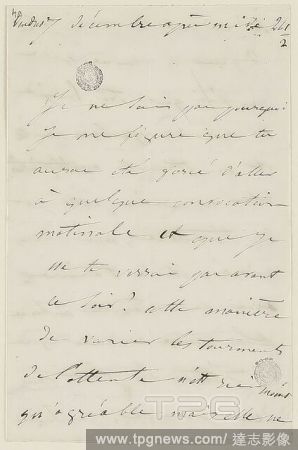 7 décembre après midi 2 h ½
Je ne sais pas pourquoi
je me figure que tu
auras été forcé d'aller
à quelque convocation
matinale et que je
ne te verrai pas avant
ce soir. Cette manière
de varier les tourments
de l'attente n'est rien moins
qu'agréable mais elle ne
TPG
NEWS.COM
www.tpgnews.com / 達志影像